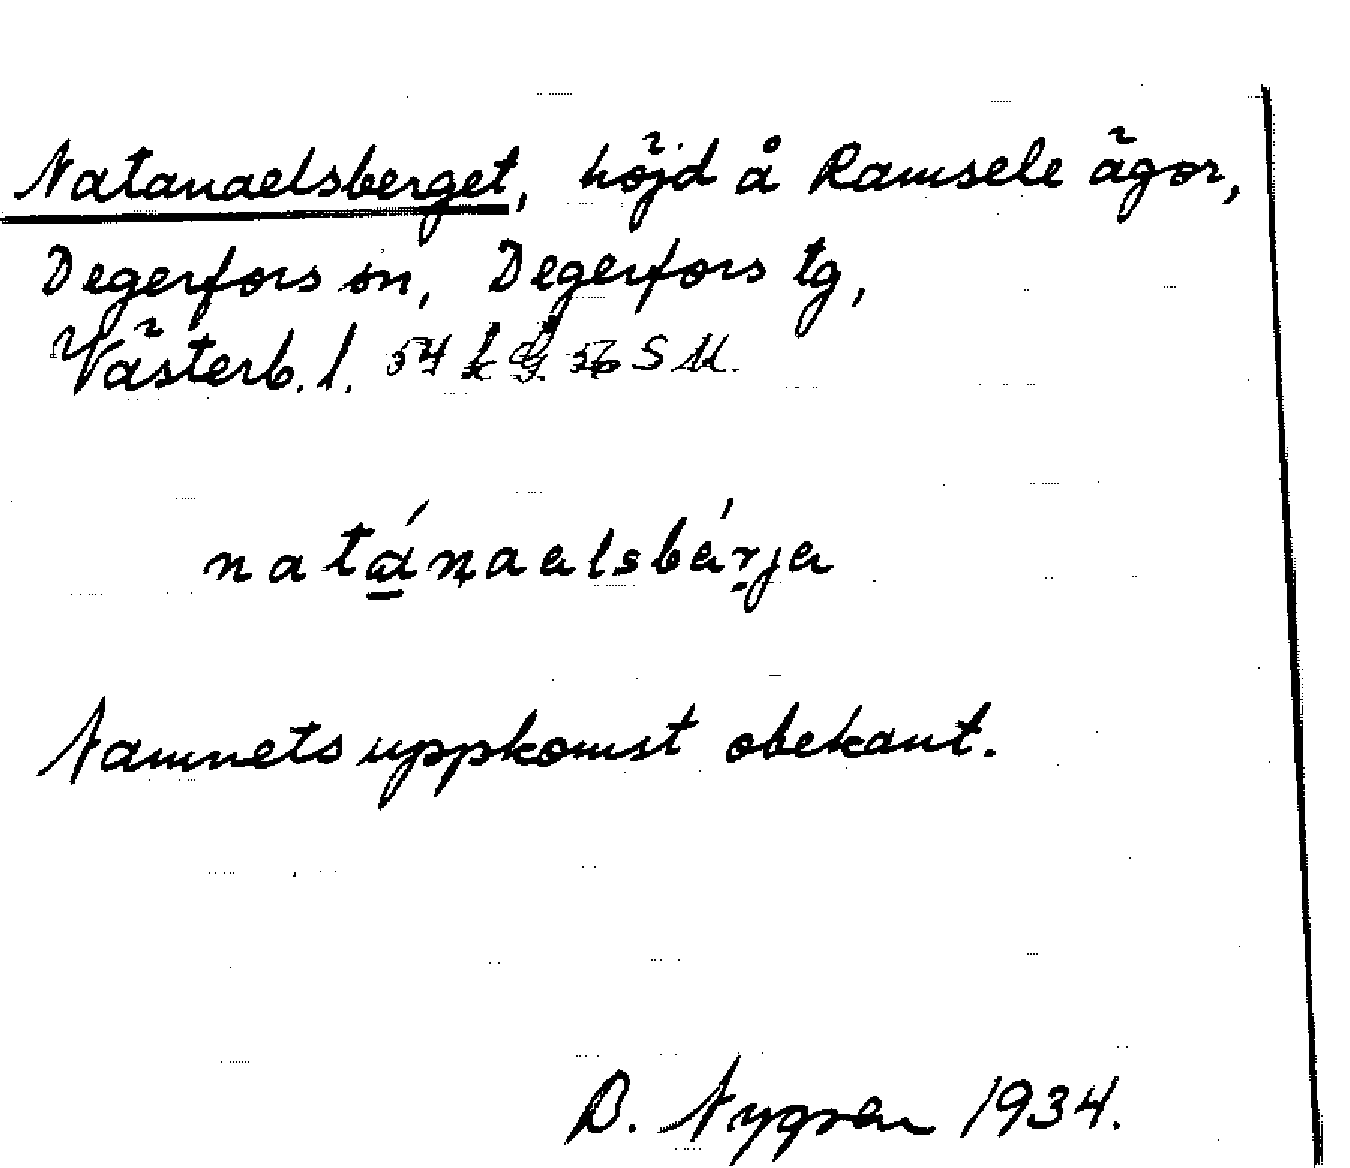 Natanaelsberget, höjd å Ramsele ägor,
Degerfors sn, Degerfors tg,
Västerb. l. 54 56 S
natánaelsbárja
Namnets uppkomst obekant.
D. Nygren 1934.